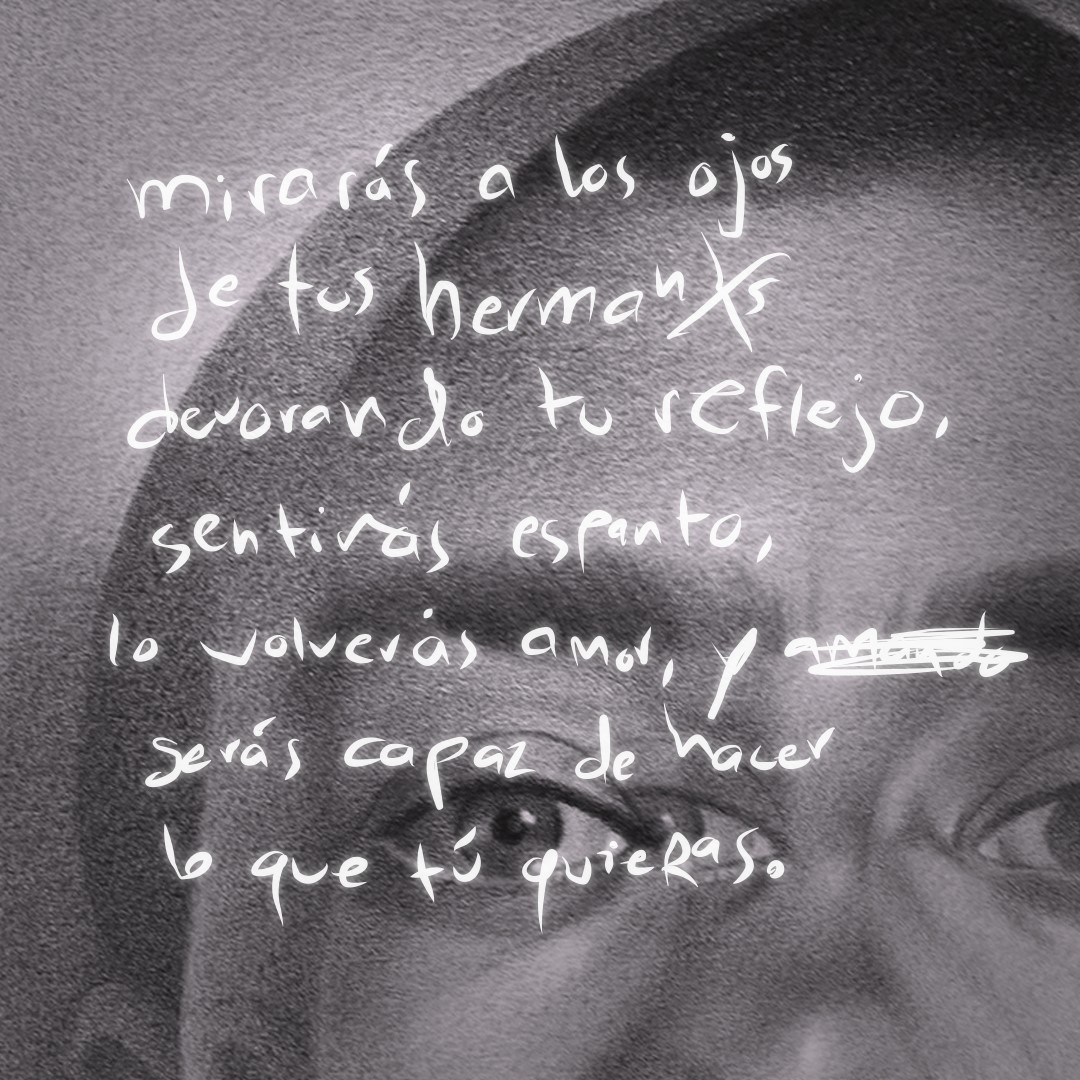 mirarás a los ojos
de tus hermanXs
devorando tu reflejo,
sentirás espanto,
lo volverás amor, y amando
serás capaz de hacer
lo que tú quieras.